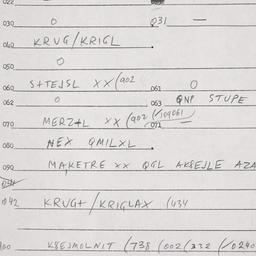 022
030 0 031 —
040 KRVG/KRIGL
050 0
060 S+TEJSL XX(902 061 0
062 0 063 QNP STUPE
070 MERZ+L XX (902 (/109061/ 072
080 NEX QMILXL
090 MAKETRE XX QGL AKSEJLE AZA
042 KRVG+/KRIGLAX (434
100 KSEJMOLNIT (738 (002(332 (/0240